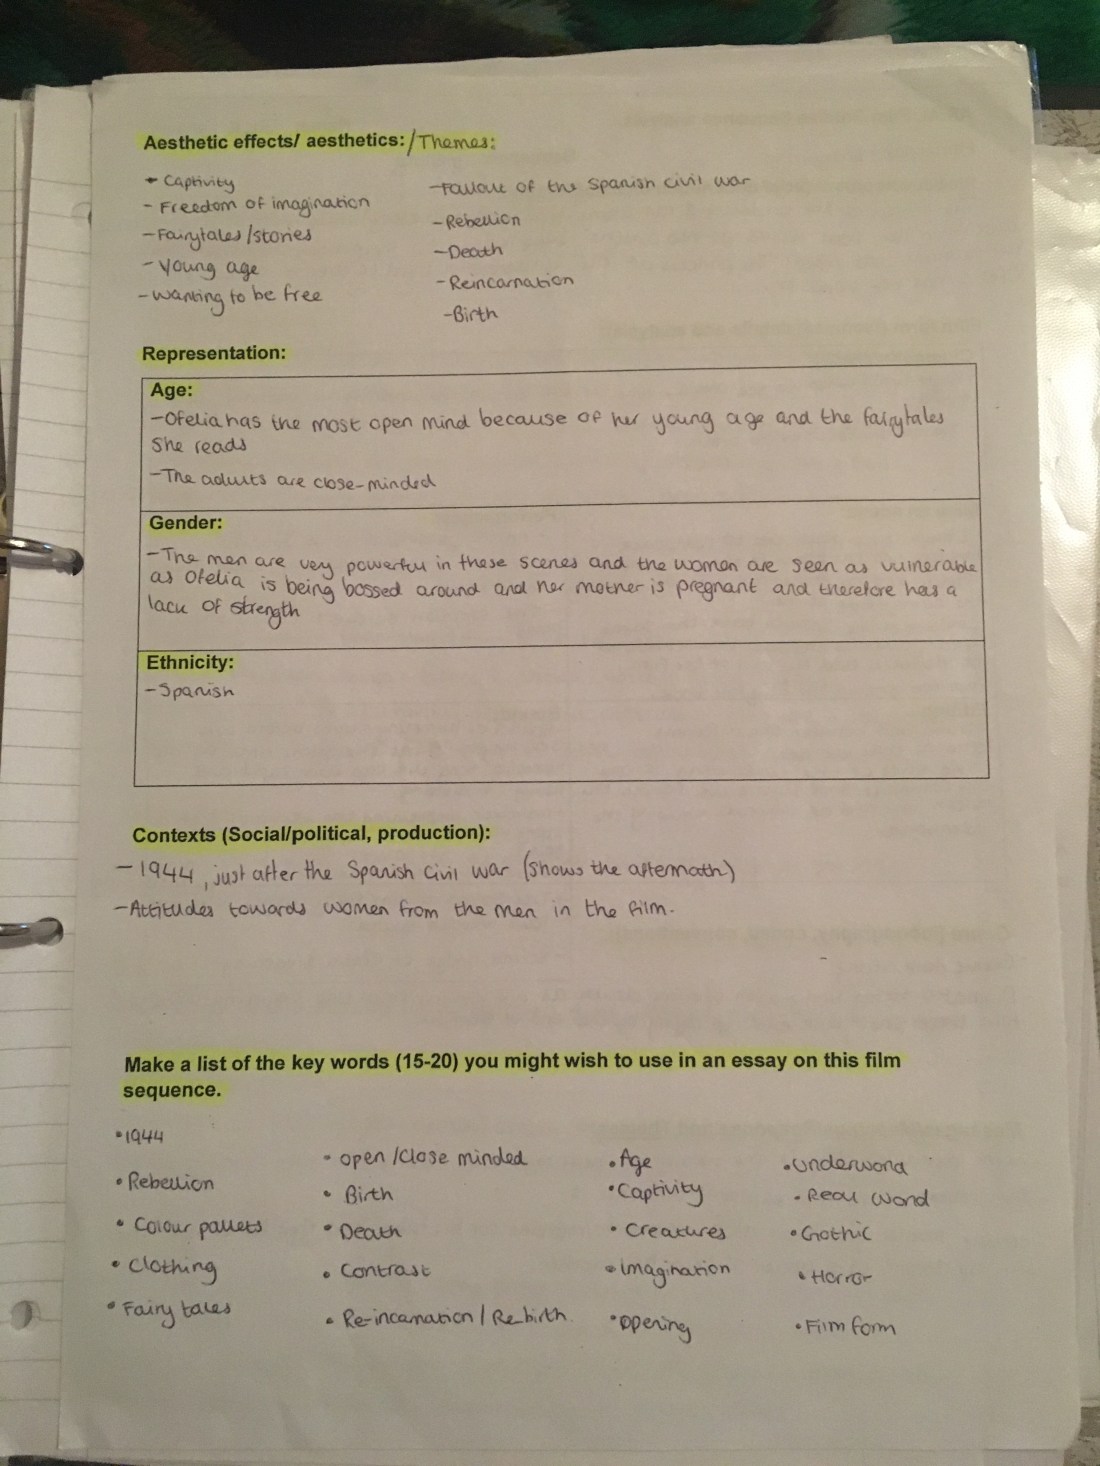 Aesthetic effects/ aesthetics:/Themes:
- Captivity
- Freedom of imagination
- Fairytales/stories
- Young age
- Wanting to be free
-Fallout of the Spanish civil war
-Rebellion
-Death
-Reincarnation
-Birth
Representation:
Age:
-Ofelia has the most open mind because of her young age and the fairytales
she reads
-The adults are close-minded
Gender:
-The men are very powerful in these scenes and the women are seen as vulnerable
as Ofelia is being bossed around and her mother is pregnant and therefore has a
lack of strength
Ethnicity:
-Spanish
Contexts (Social/political, production):
- 1944, just after the Spanish Civil war (shows the aftermath)
-Attitudes towards women from the men in the film.
Make a list of the key words (15-20) you might wish to use in an essay on this film
sequence.
•1944
•Rebellion
• Colour pallets
• Clothing
• Fairy tales
• Open/Close minded
• Birth
• Death
• Contrast
• Re-incarnation / Re-birth.
•Age
•Captivity
• Creatures
•Imagination
•Opening
•Underworld
• Real World
•Gothic
•Horror
•Film form